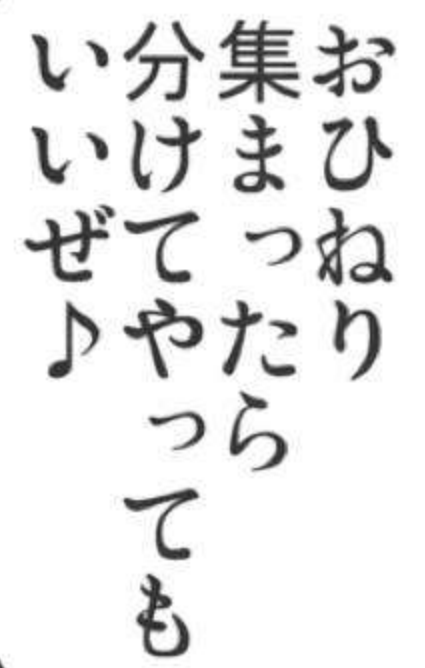 おひねり
集まったら
分けてやっても
いいぜ♪